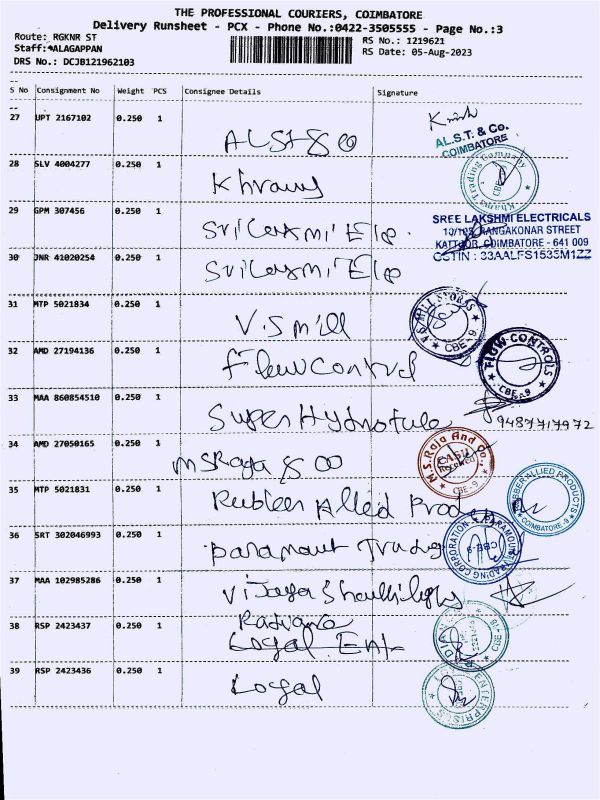 THE PROFESSIONAL COURIERS, COIMBATORE
Delivery Runsheet - PCX - Phone No.:0422-3505555 - Page No.:3
Route: RGKNR ST
RS No.: 1219621
Staff: ALAGAPPAN
RS Date: 05-Aug-2023
DRS No.: DCJB121962103
S No Consignment No Weight PCS Consignee Details Signature
27 UPT 2167102 0.250 1
AL.S.T. & Co.
COIMBATORE
28 SLV 4004277 0.250 1
Khrams Trading Company
CBE
29 GPM 307456 0.250 1 Sri Laxmi Ele
SREE LAKSHMI ELECTRICALS
10/105, RANGAKONAR STREET
KATTOOR, COIMBATORE - 641 009
GSTIN : 33AALFS1535M1ZZ
30 JNR 41020254 0.250 1 Sri Laxmi Ele
31 MTP 5021834 0.250 1 V.S mill
V.S. MILL STORES
CBE - 9
32 AMD 27194136 0.250 1 Flow Control
FLOW CONTROLS
CBE - 9
33 MAA 860854510 0.250 1 Super Hydrofule
9487717972
34 AMD 27050165 0.250 1 M S Raja & CO
M.S. Raja And Co.,
CASH
Received
CBE - 9
35 MTP 5021831 0.250 1 Rubber Allied Prod
RUBBER ALLIED PRODUCTS
COIMBATORE-9
36 SRT 302046993 0.250 1 Paramount Trading
PARAMOUNT TRADING CORPORATION
CBE-9
37 MAA 102985286 0.250 1 Vijaya
38 RSP 2423437 0.250 1
39 RSP 2423436 0.250 1 Loyal
ENTERPRISES